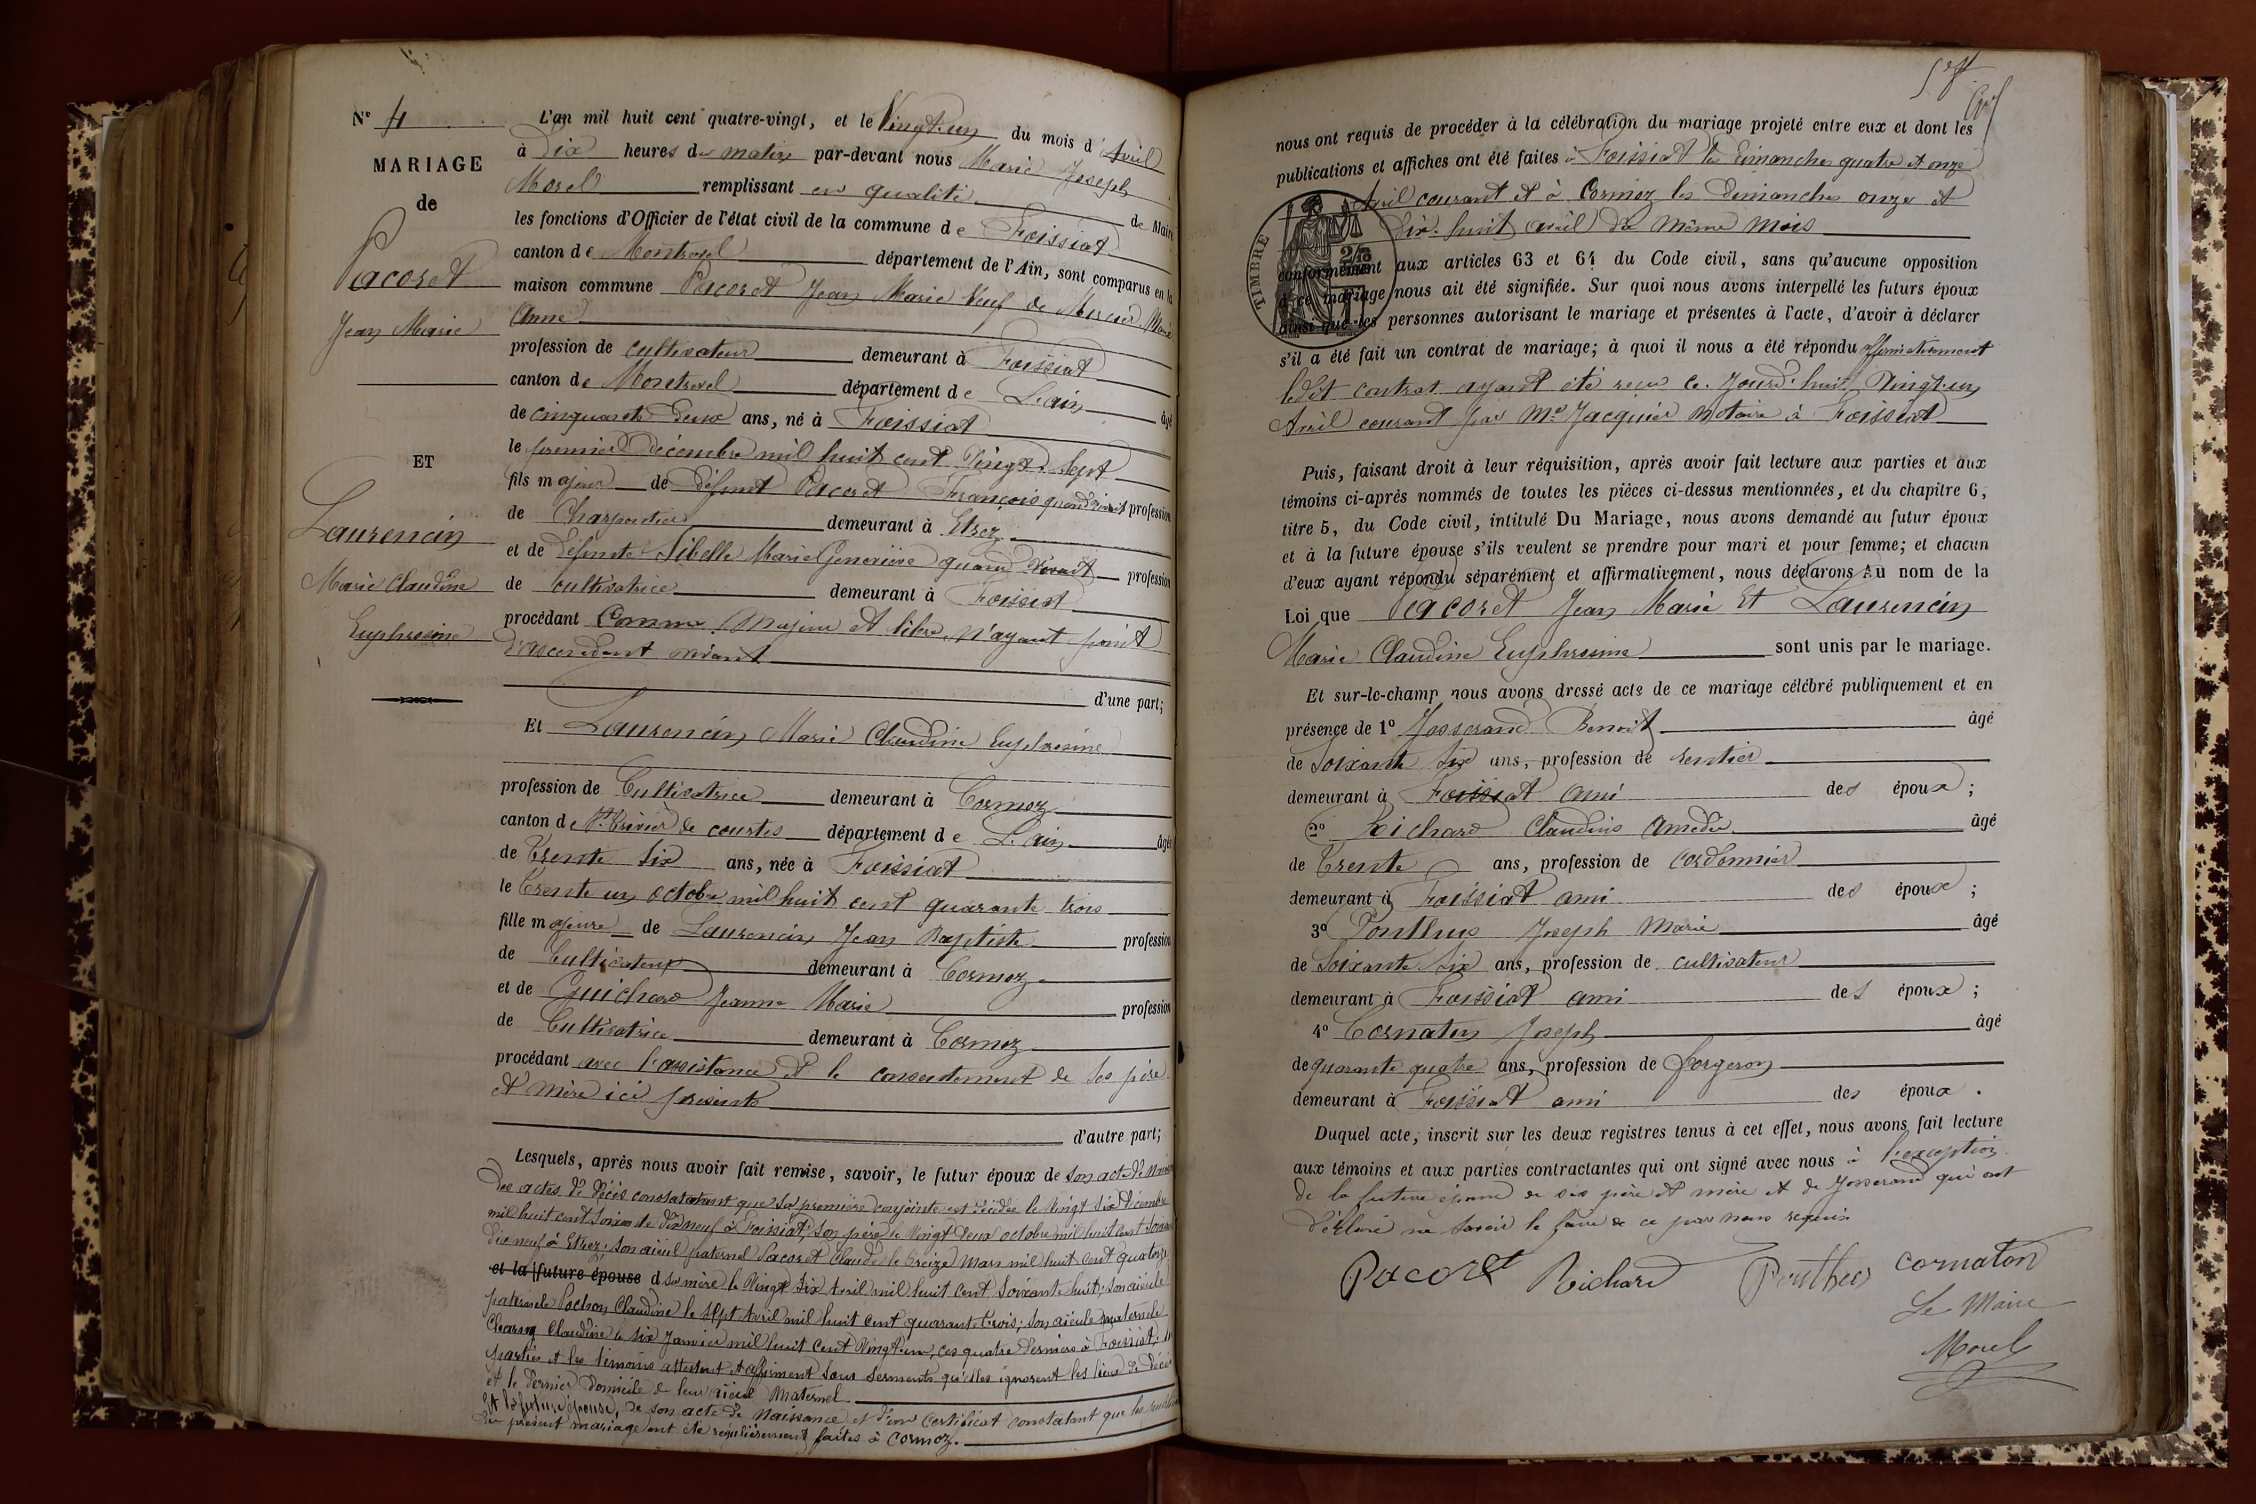 N° 4
MARIAGE
de
Pacoret
Jean Marie
ET
Laurencin
Marie Claudine
Euphrosine
L'an mil huit cent quatre-vingt, et le Vingt-un du mois d'Avril
à Dix heures du matin par-devant nous Marie Joseph
Morel remplissant en qualité de Maire
les fonctions d'Officier de l'état civil de la commune de Foissiat
canton de Montrevel département de l'Ain, sont comparus en la
maison commune Pacoret Jean Marie Veuf de Mercier Marie
Anne
profession de cultivateur demeurant à Foissiat
canton de Montrevel département de L'ain âgé
de cinquante deux ans, né à Foissiat
le premier décembre mil huit cent Vingt-Sept
fils majeur de défunt Pacoret François quand vivait profession
de Charpentier demeurant à Etrez
et de défunte Sibelle Marie Geneviève quand vivait profession
de cultivatrice demeurant à Foissiat
procédant Comme Majeur et libre, n'ayant point
d'ascendant vivant
d'une part;
Et Laurencin Marie Claudine Euphrosine
profession de Cultivatrice demeurant à Cormoz
canton de St Trivier de courtes département de L'ain âgée
de Trente Six ans, née à Foissiat
le Trente un octobre mil huit cent quarante trois
fille majeure de Laurencin Jean Baptiste profession
de Cultivateur demeurant à Cormoz
et de Guichard Jeanne Marie profession
de Cultivatrice demeurant à Cormoz
procédant avec l'assistance et le consentement de Ses père
et mère ici présents
d'autre part;
Lesquels, après nous avoir fait remise, savoir, le futur époux de son acte de
Des actes de Décès constatant que Sa première conjointe est décédée le Vingt Six Décembre
mil huit cent Soixante Dix neuf à Foissiat; Son père le Vingt Deux octobre mil huit cent
Dix neuf à Etrez; Son aieul paternel Pacoret Claude le Treize Mars mil huit cent quatorze
et la future épouse Sa mère le Vingt Six Avril mil huit cent Soixante huit; Son aieule
paternele Pochon Claudine le Sept Avril mil huit cent quarante Trois; Son aieule maternele
Claudine le Six Janvier mil huit cent Vingt-un, ces quatre Derniers à Foissiat;
parties et les témoins attestent et affirment Sous Serments qu'elles ignorent les lieux de Décès
et le Dernier Domicile de leur aieul Maternel
Et la future épouse, de son acte de Naissance et d'un Certificat constatant que les
du présent mariage ont été régulièrement faites à Cormoz.
nous ont requis de procéder à la célébration du mariage projeté entre eux et dont les
publications et affiches ont été faites à Foissiat les Dimanches quatre et onze
Avril courant et à Cormoz les Dimanches onze et
Dix-huit avril du même mois
TIMBRE
conformément aux articles 63 et 64 du Code civil, sans qu'aucune opposition
à ce mariage nous ait été signifiée. Sur quoi nous avons interpellé les futurs époux
ainsi que les personnes autorisant le mariage et présentes à l'acte, d'avoir à déclarer
s'il a été fait un contrat de mariage; à quoi il nous a été répondu affirmativement
ledit contrat ayant été reçu ce Jourd'huit Vingt-un
Avril courant par Me Jacquier Notaire à Foissiat
Puis, faisant droit à leur réquisition, après avoir fait lecture aux parties et aux
témoins ci-après nommés de toutes les pièces ci-dessus mentionnées, et du chapitre 6,
titre 5, du Code civil, intitulé Du Mariage, nous avons demandé au futur époux
et à la future épouse s'ils veulent se prendre pour mari et pour femme; et chacun
d'eux ayant répondu séparément et affirmativement, nous déclarons Au nom de la
Loi que Pacoret Jean Marie Et Laurencin
Marie Claudine Euphrosine sont unis par le mariage.
Et sur-le-champ nous avons dressé acte de ce mariage célébré publiquement et en
présence de 1° Josserand Benoit âgé
de Soixante Six ans, profession de rentier
demeurant à Foissiat ami des époux;
2° Richard Claudius Amédée âgé
de Trente ans, profession de cordonnier
demeurant à Foissiat ami des époux;
3° Ponthus Joseph Marie âgé
de Soixante Six ans, profession de cultivateur
demeurant à Foissiat ami des époux;
4° Cornaton Joseph âgé
de quarante quatre ans, profession de forgeron
demeurant à Foissiat ami des époux.
Duquel acte, inscrit sur les deux registres tenus à cet effet, nous avons fait lecture
aux témoins et aux parties contractantes qui ont signé avec nous à l'exception
de la future épouse de ses père et mère et de Josserand qui ont
déclaré ne Savoir le faire de ce par nous requis
Pacoret Richard Ponthus Cornaton
Le Maire
Morel